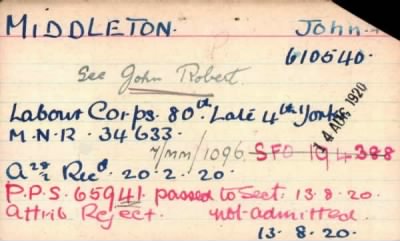 MIDDLETON. John
610540.
See John Robert.
Labour Corps. 80th. Late 4th Yorks
14 AUG 1920
M.N.R. 34633.
7/MM/1096. SFO 194388
Recd. 20.2.20.
P.P.S. 65941 passed to Sect. 13.8.20.
Attrib. Reject. not admitted.
13.8.20.